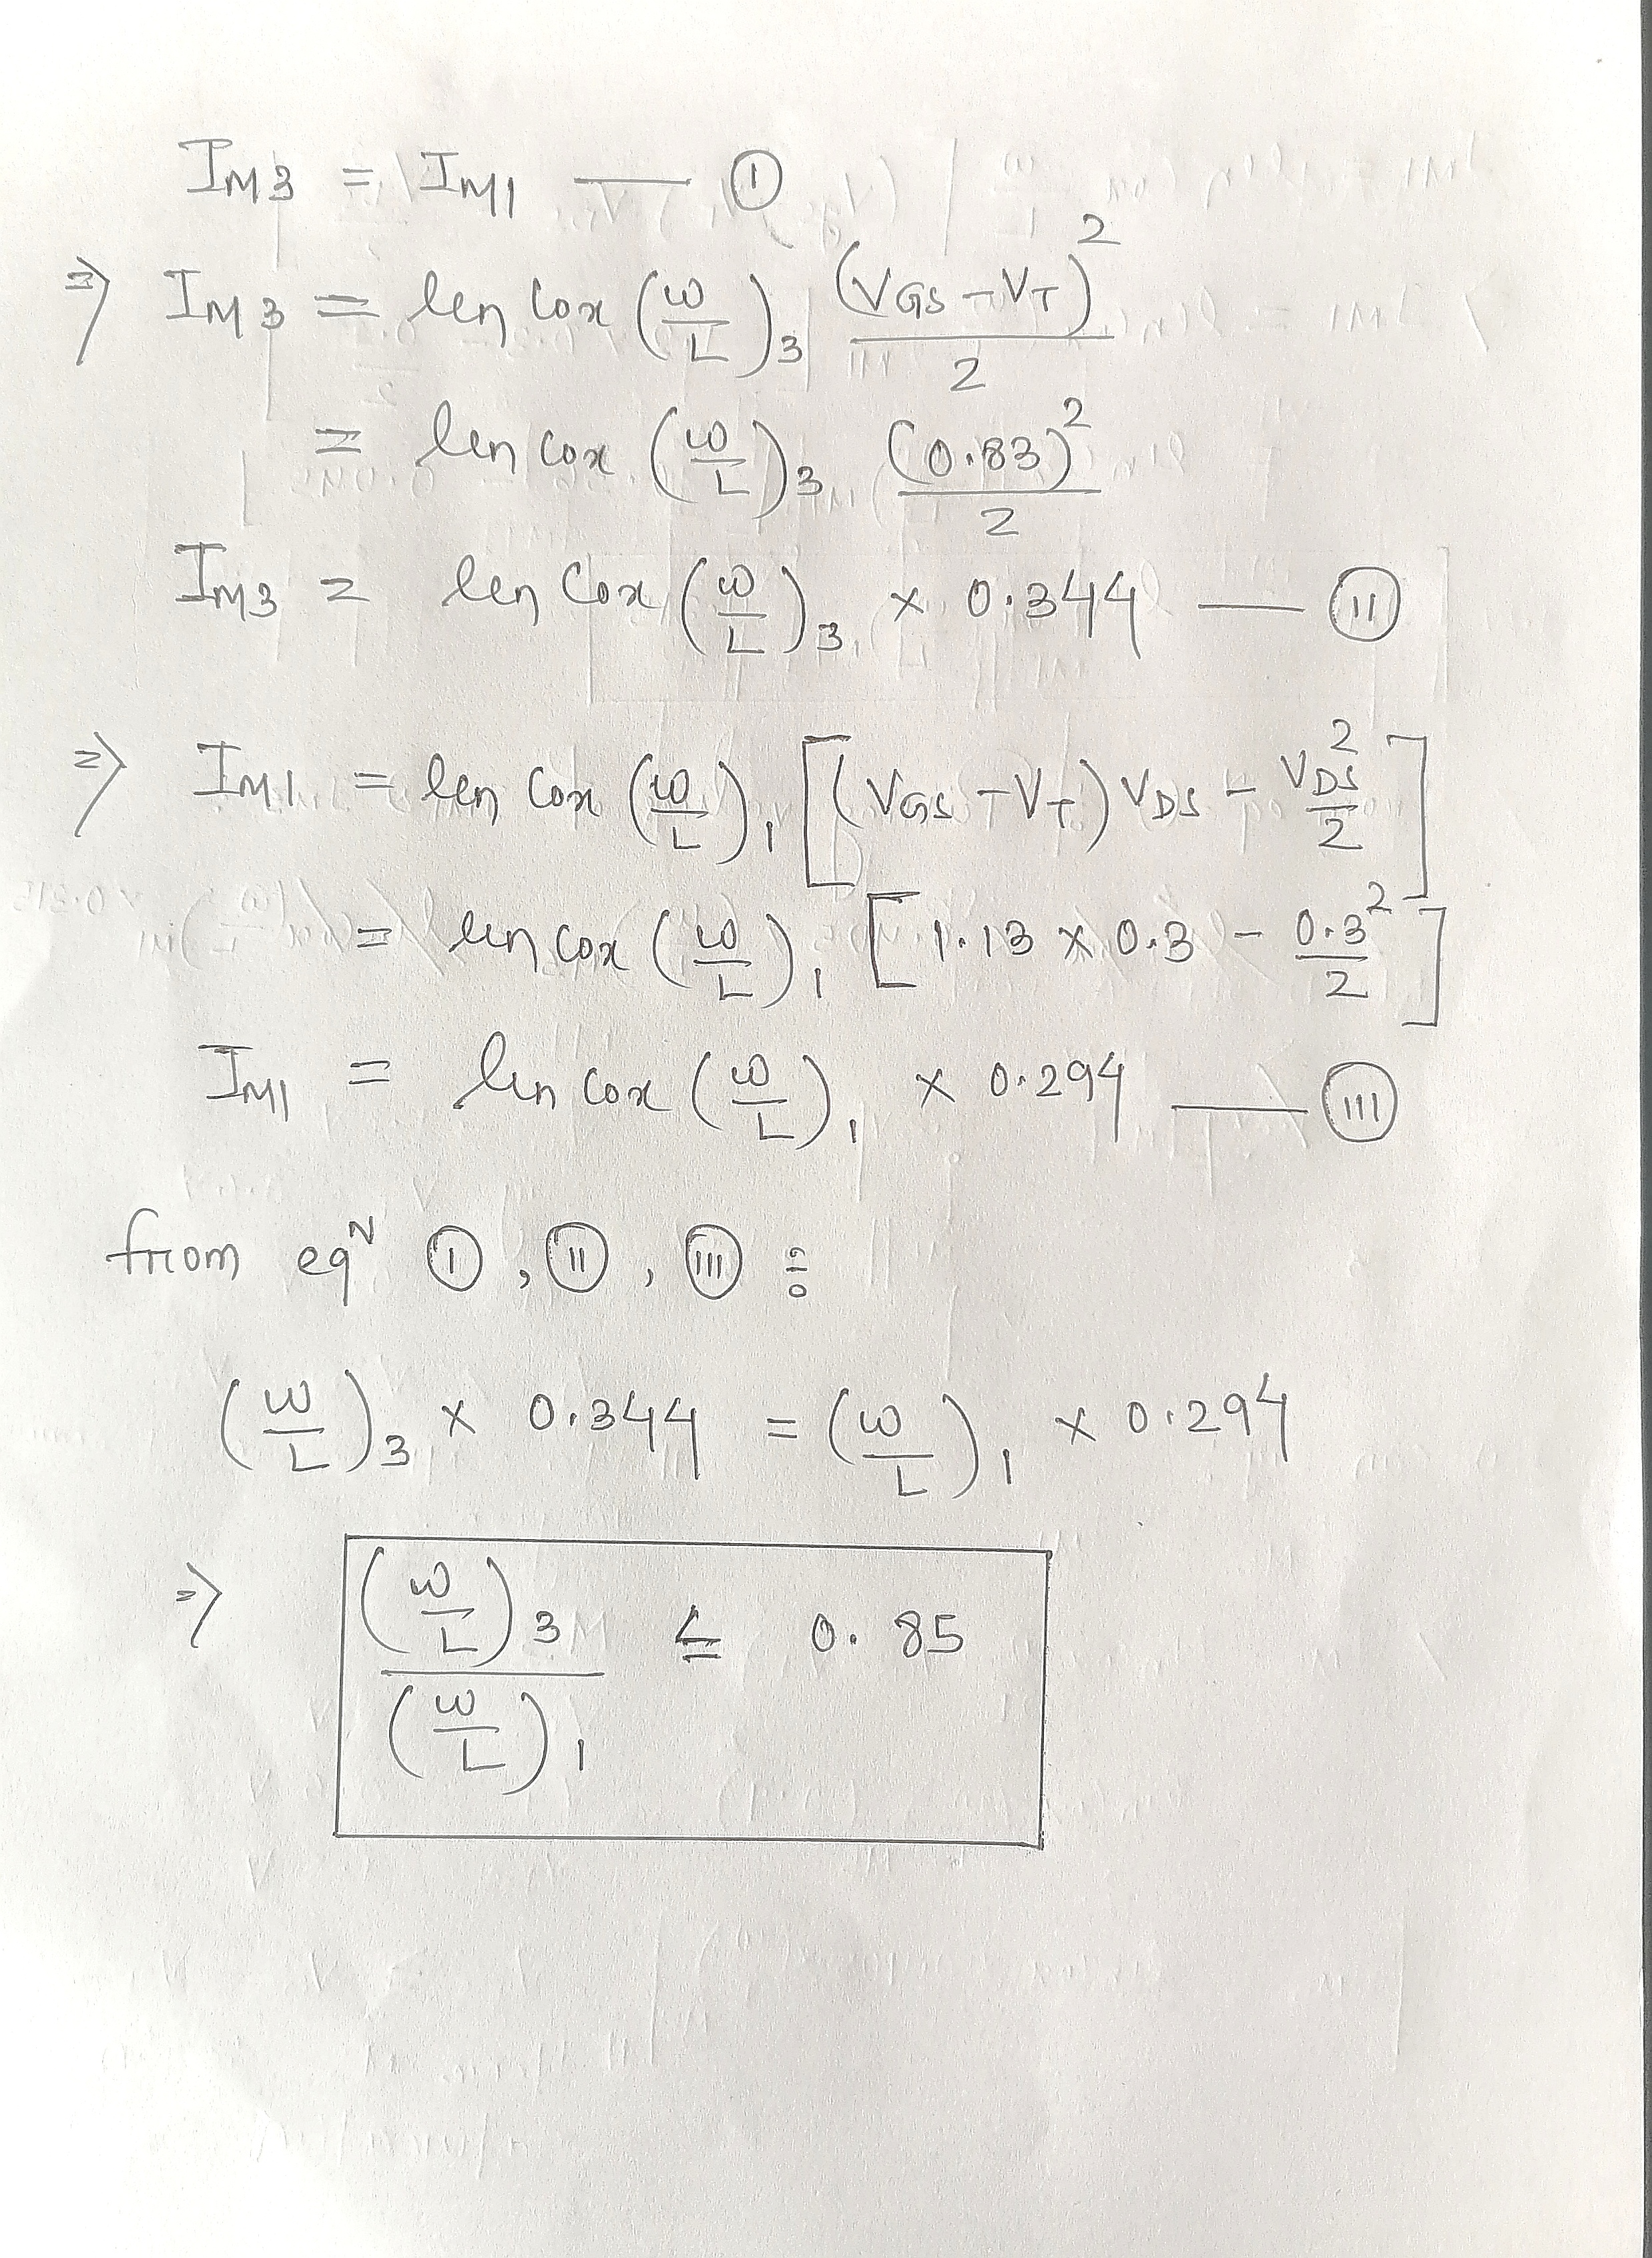 I_M3 = I_M1 — (I)
⇒ I_M3 = μn Cox (W/L)_3 (V_GS - V_T)^2 / 2
= μn Cox (W/L)_3 (0.83)^2 / 2
I_M3 = μn Cox (W/L)_3 × 0.344 — (II)
⇒ I_M1 = μn Cox (W/L)_1 [(V_GS - V_T) V_DS - V_DS^2 / 2]
= μn Cox (W/L)_1 [1.13 × 0.3 - 0.3^2 / 2]
I_M1 = μn Cox (W/L)_1 × 0.294 — (III)
from eq^N (I), (II), (III) :
(W/L)_3 × 0.344 = (W/L)_1 × 0.294
⇒ (W/L)_3 / (W/L)_1 ≤ 0.85